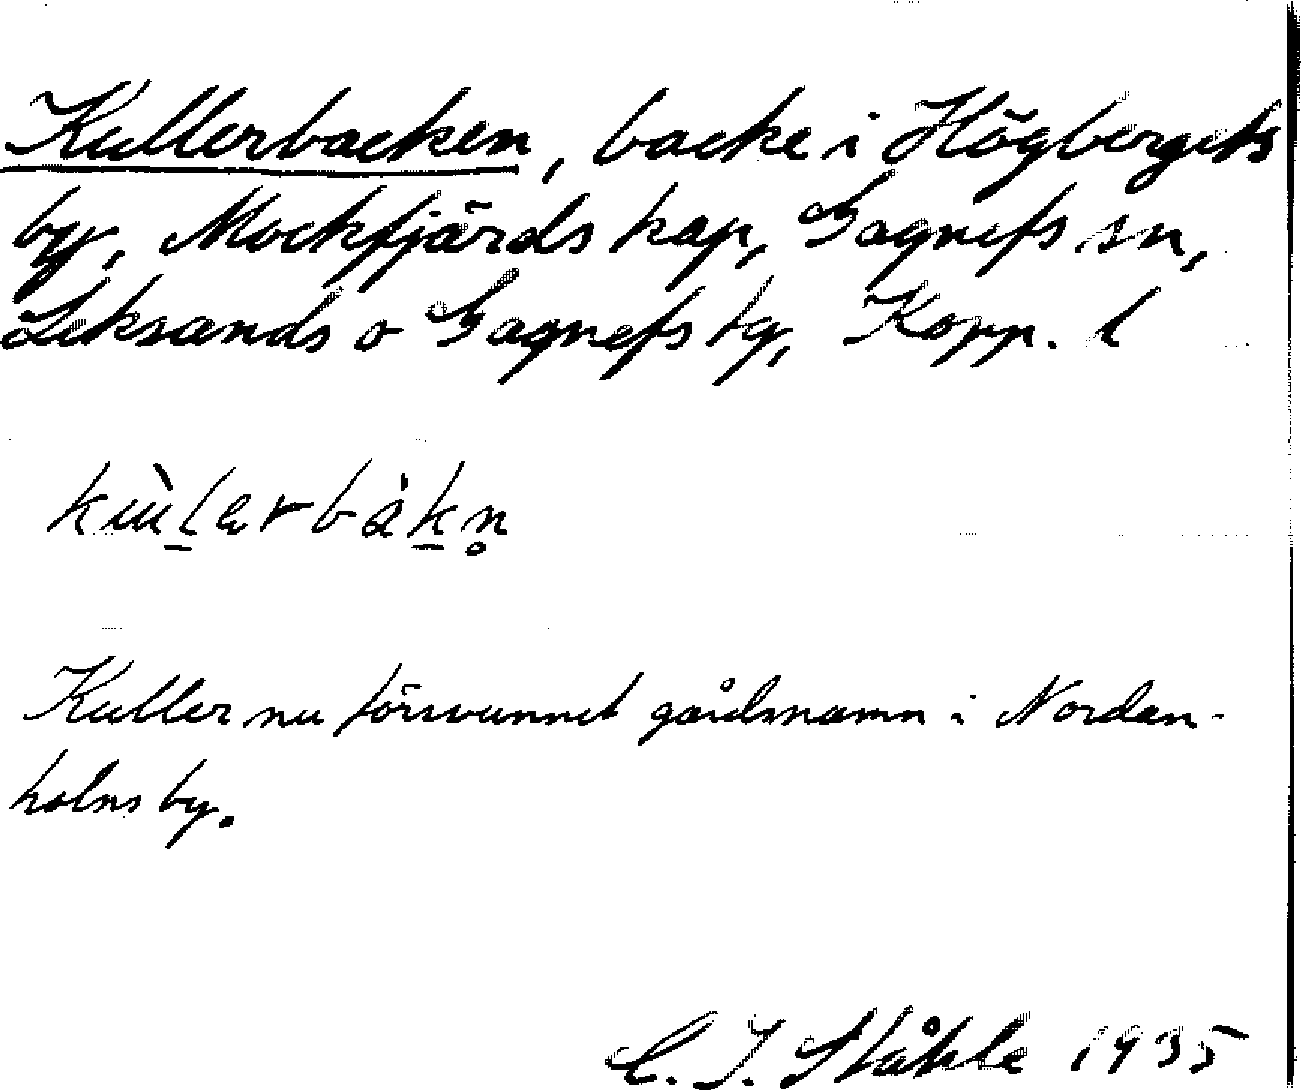 Kullerbacken, backe i Högbergets
by, Mockfjärds kap, Gagnefs sn,
Leksands o Gagnefs tg, Kopp. l
kùl̠ərbàk̠n̥
Kuller nu försvunnet gårdsnamn i Nordan-
holns by.
C. I. Ståhle 1935